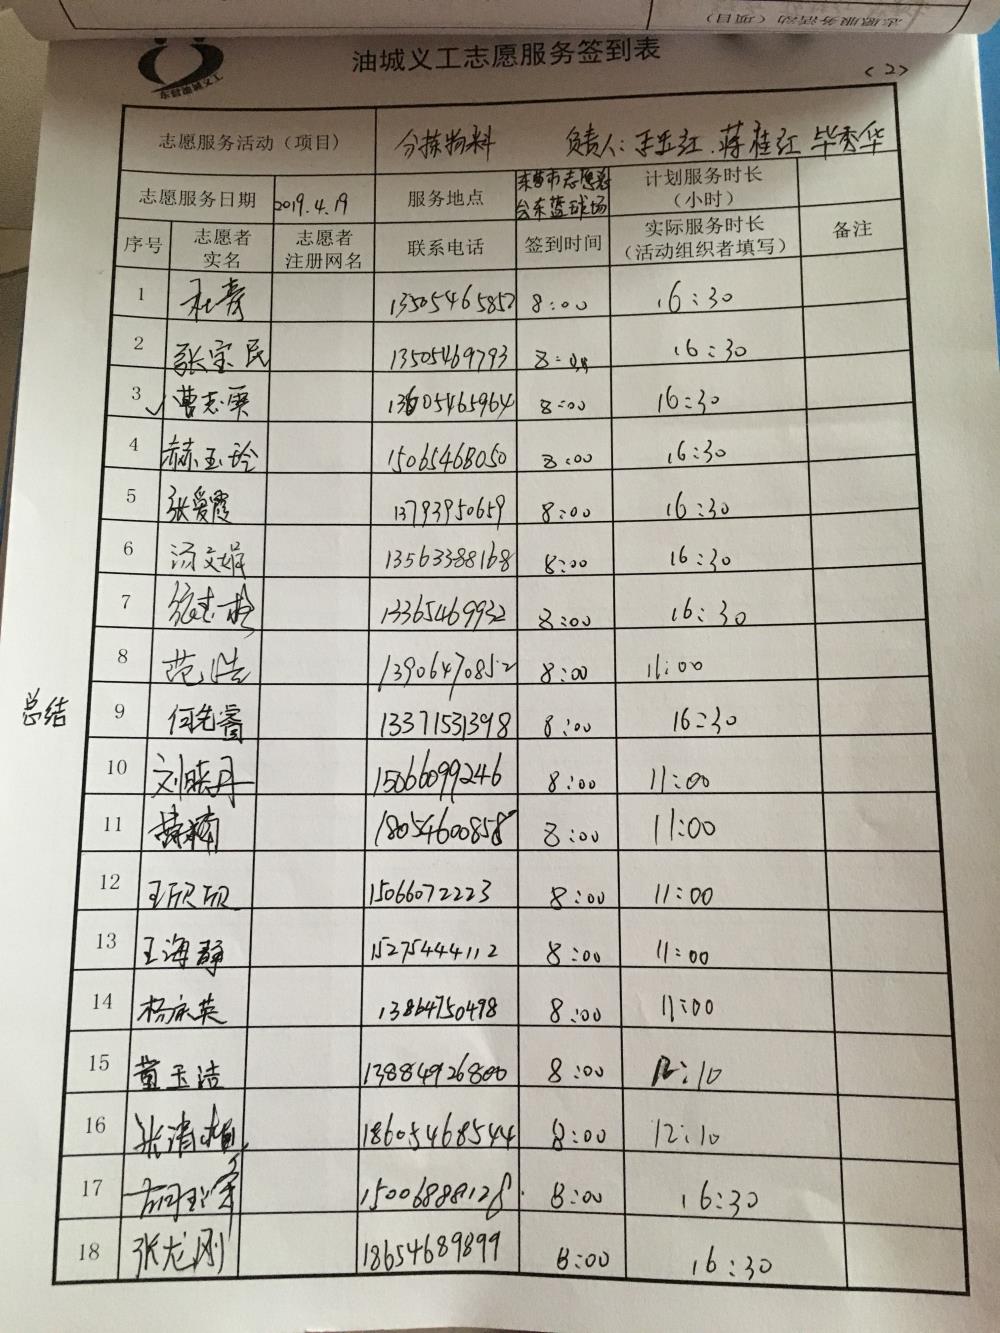 志愿服务活动（项目）
东营油城义工
油城义工志愿服务签到表
<2>
志愿服务活动（项目） 分拣物料 负责人：王亚红、蒋桂红 毕秀华
志愿服务日期 2019.4.19 服务地点 东营市志愿总台东篮球场 计划服务时长（小时）
序号 志愿者实名 志愿者注册网名 联系电话 签到时间 实际服务时长（活动组织者填写） 备注
1 13505465852 8:00 16:30
2 张宝民 13505469793 16:30
3 曹志栗 13605465964 8:00 16:30
4 赫玉玲 15065468050 8:00 16:30
5 张爱霞 13793950659 8:00 16:30
6 汤文娟 13563388168 8:00 16:30
7 13365469932 8:00 16:30
8 范浩 13906470852 8:00 11:00
总结
9 何先睿 13371531398 8:00 16:30
10 刘晓丹 15066099246 8:00 11:00
11 18054600858 8:00 11:00
12 王欣欣 15066072223 8:00 11:00
13 王海静 15275444112 8:00 11:00
14 杨庆英 13864750498 8:00 11:00
15 董玉洁 13884926800 8:00 12:10
16 18605468544 8:00 12:10
17 15006888128 8:00 16:30
18 张龙刚 18654689899 8:00 16:30